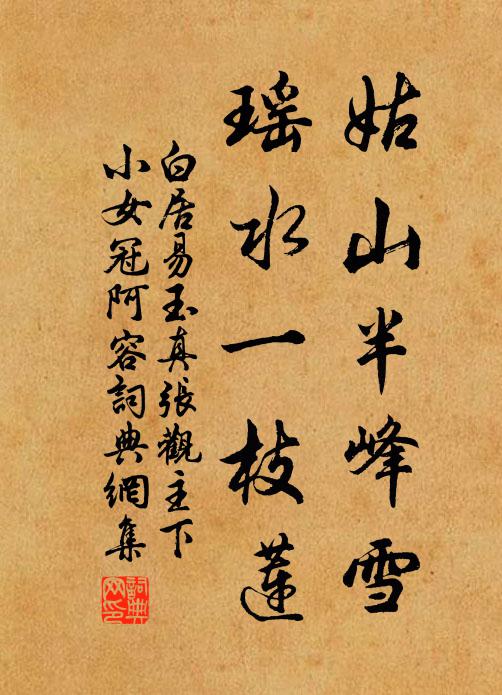 姑山半峰雪
瑤水一枝蓮
白居易玉真張觀主下
小女冠阿容詞典網集
詞典
网印